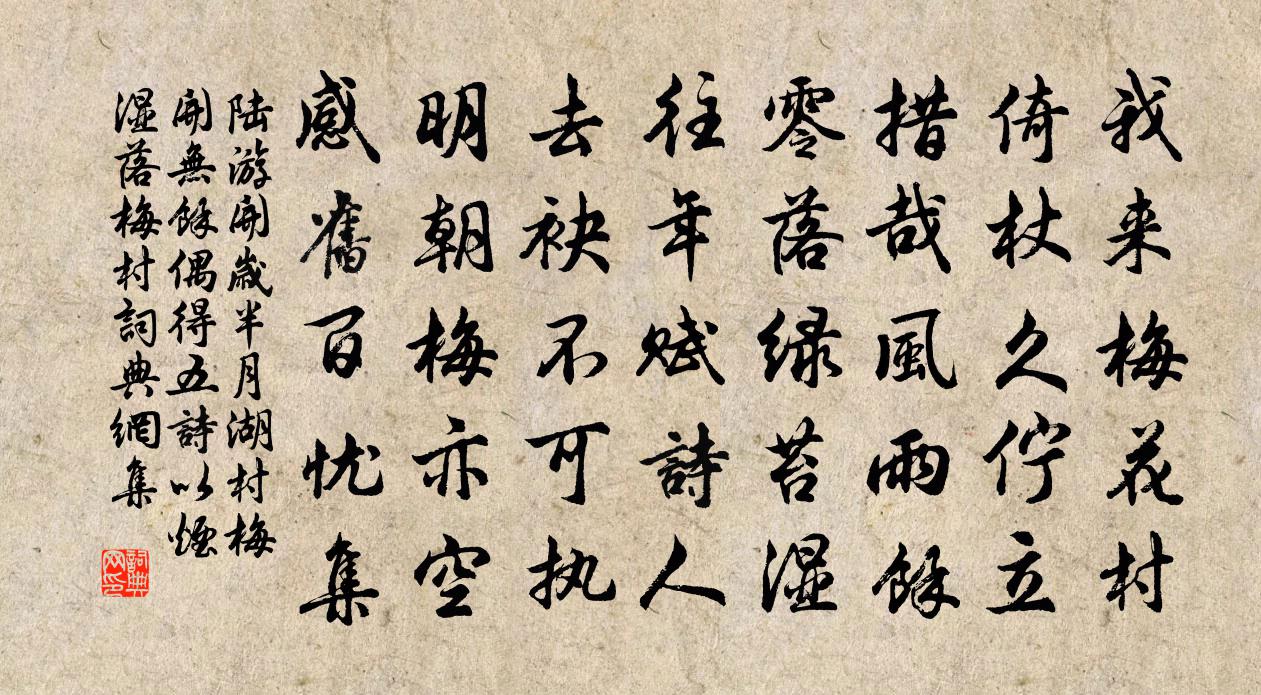 我来梅花村
倚杖久佇立
措哉風雨餘
零落绿苔濕
往年赋詩人
去袂不可执
明朝梅亦空
感舊百忧集
陆游開歲半月湖村梅
開無餘偶得五詩以煙
濕落梅村詞典網集
詞典网印